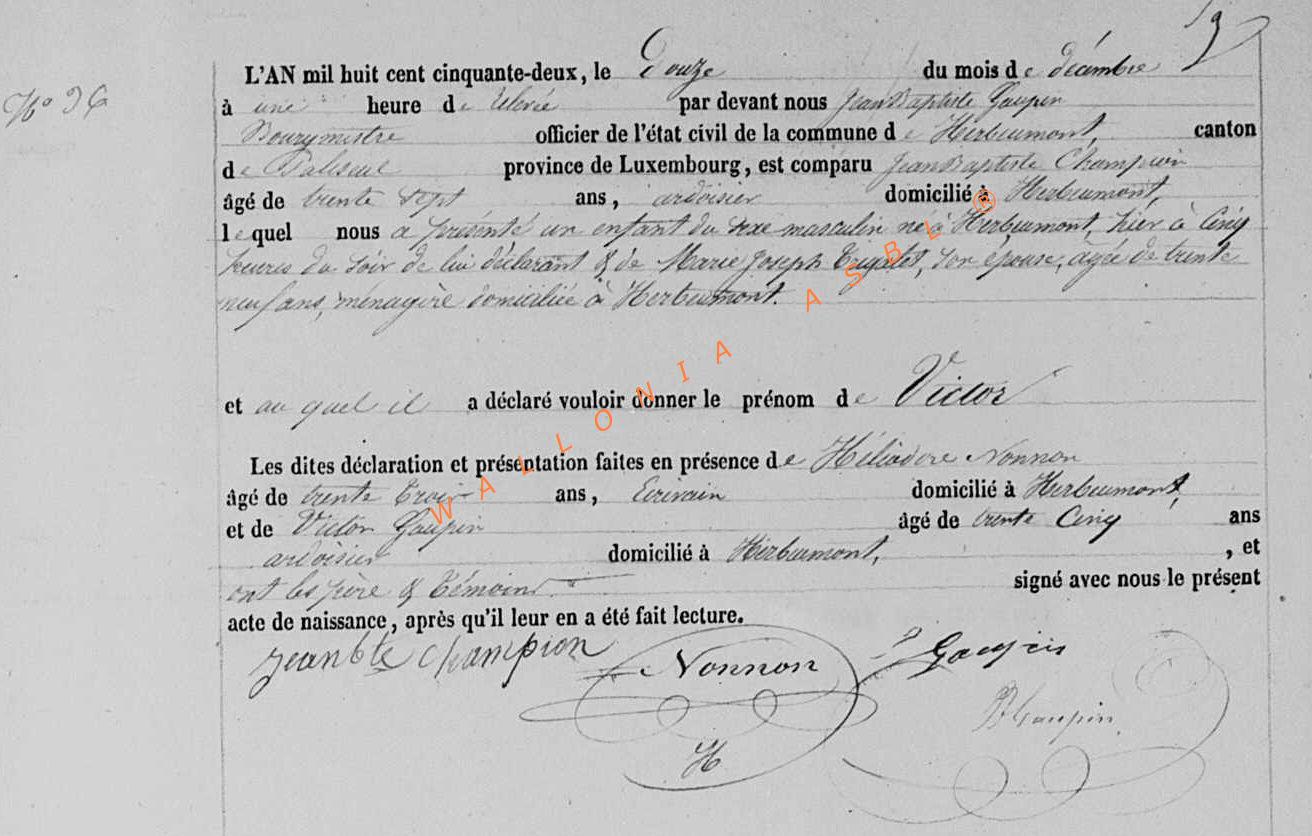 L'AN mil huit cent cinquante-deux, le Douze du mois de décembre
N° 36
à une heure de relevée par devant nous Jean Baptiste Gaupin
Bourgmestre officier de l'état civil de la commune de Herbeumont, canton
de Paliseul province de Luxembourg, est comparu Jean Baptiste Champion
âgé de trente sept ans, ardoisier domicilié à Herbeumont,
lequel nous a présenté un enfant du sexe masculin né à Herbeumont, hier à Cinq
heures du soir de lui déclarant & de Marie Joseph Trigalet, son épouse, agée de trente
neuf ans, ménagère domiciliée à Herbeumont.
et au quel il a déclaré vouloir donner le prénom de Victor
Les dites déclaration et présentation faites en présence de Héliodore Nonnon
âgé de trente trois ans, Ecrivain domicilié à Herbeumont,
et de Victor Gaupin âgé de trente Cinq ans
ardoisier domicilié à Herbeumont, , et
ont les père & témoins signé avec nous le présent
acte de naissance, après qu'il leur en a été fait lecture.
jean bte champion Nonnon Gaupin
JB Gaupin
H
WALLONIA ASBL ®